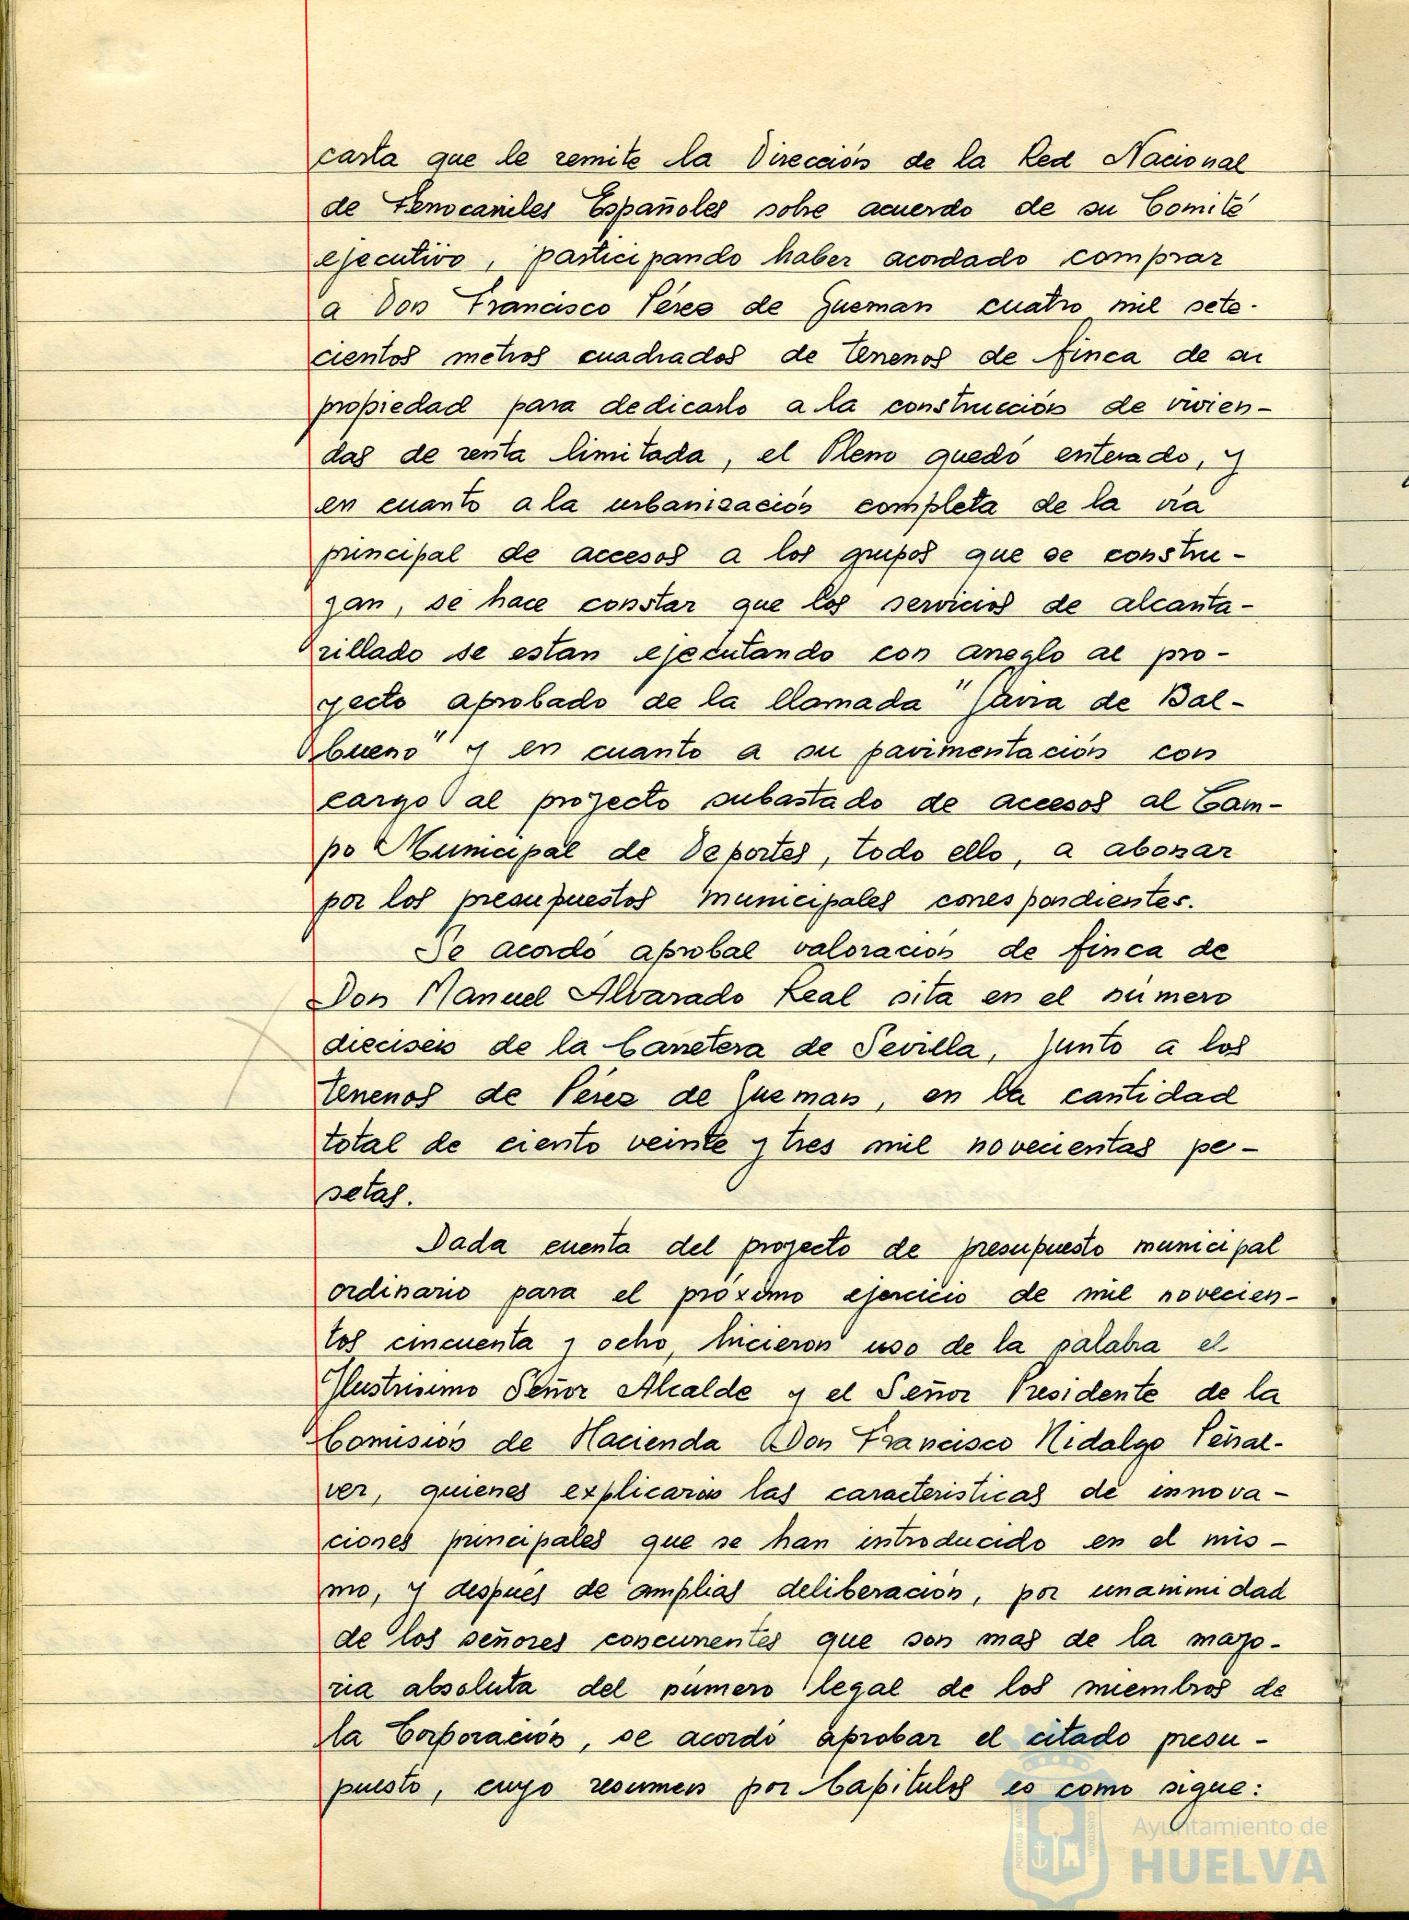 carta que le remite la Dirección de la Red Nacional
de Ferrocarriles Españoles sobre acuerdo de su Comité
ejecutivo, participando haber acordado comprar
a Don Francisco Pérez de Guzman cuatro mil sete-
cientos metros cuadrados de terrenos de finca de su
propiedad para dedicarlo a la construcción de vivien-
das de renta limitada, el Pleno quedó enterado, y
en cuanto a la urbanización completa de la vía
principal de accesos a los grupos que se constru-
yan, se hace constar que los servicios de alcanta-
rillado se estan ejecutando con arreglo al pro-
yecto aprobado de la llamada "Gavia de Bal-
bueno" y en cuanto a su pavimentación con
cargo al proyecto subastado de accesos al Cam-
po Municipal de Deportes, todo ello, a abonar
por los presupuestos municipales correspondientes.
Se acordó aprobal valoración de finca de
Don Manuel Alvarado Real sita en el número
dieciseis de la Carretera de Sevilla, junto a los
terrenos de Pérez de Guzman, en la cantidad
total de ciento veinte y tres mil novecientas pe-
setas.
Dada cuenta del proyecto de presupuesto municipal
ordinario para el próximo ejercicio de mil novecien-
tos cincuenta y ocho, hicieron uso de la palabra el
Ilustrisimo Señor Alcalde y el Señor Presidente de la
Comisión de Hacienda Don Francisco Hidalgo Peñal-
ver, quienes explicarón las caracteristicas de innova-
ciones principales que se han introducido en el mis-
mo, y después de amplias deliberación, por unanimidad
de los señores concurrentes que son mas de la mayo-
ria absoluta del número legal de los miembros de
la Corporación, se acordó aprobar el citado presu-
puesto, cuyo resumen por Capitulos es como sigue:
Ayuntamiento de
HUELVA